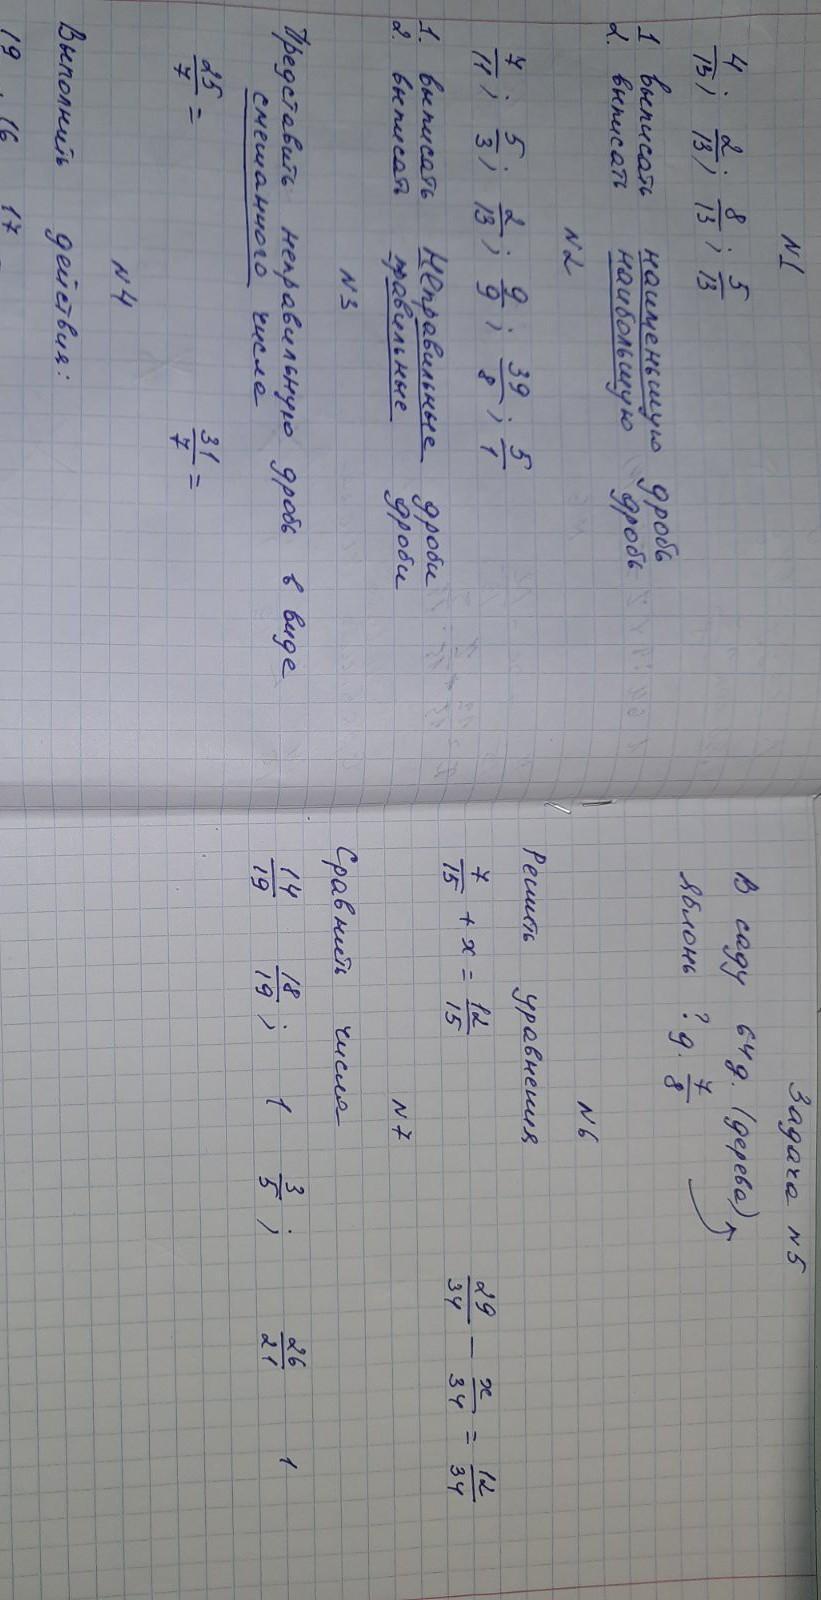 N1
4/13; 2/13; 8/13; 5/13
1 выписать наименьшую дробь
2. выписать наибольшую дробь
N2
7/11; 5/3; 2/13; 9/9; 39/8; 5/1
1. выписать неправильные дроби
2. выписать правильные дроби
N3
Представить неправильную дробь в виде
смешанного числа
25/7 =   31/7 =
N4
Выполнить действия:
19   16   17
Задача N5
В саду 64 д. (дерева)
Яблонь ? д. 7/8
N6
Решить уравнения
7/15 + x = 12/15   29/34 − x/34 = 12/34
N7
Сравнить числа
14/19   18/19;   1   3/5;   26/21   1